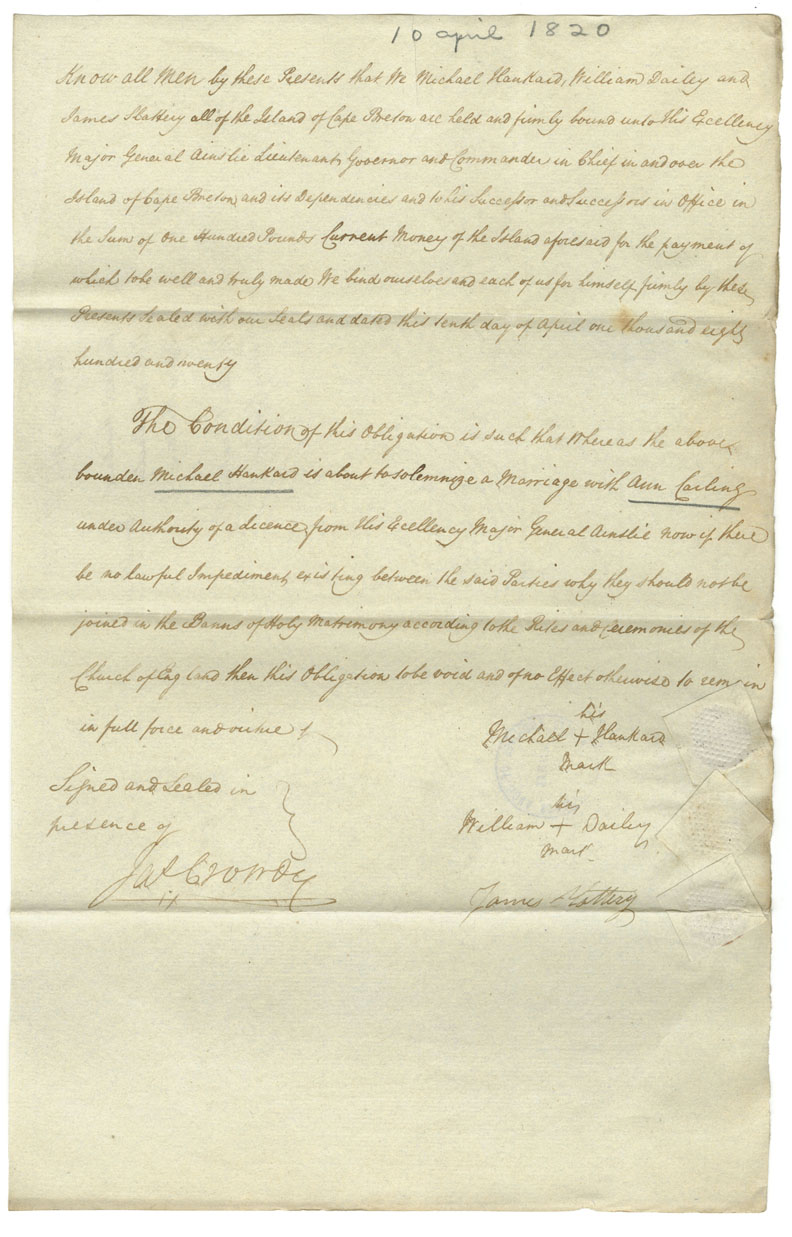 10 april 1820
Know all Men by these Presents that We Michael Hankard, William Dailey and
James Slattery all of the Island of Cape Breton are held and firmly bound unto His Excellency
Major General Ainslie Lieutenant Governor and Commander in Chief in and over the
Island of Cape Breton and its Dependencies and to his Successor and Successors in Office in
the Sum of One Hundred Pounds Current Money of the Island aforesaid for the payment of
which to be well and truly made We bind ourselves and each of us for himself firmly by these
Presents Sealed with our Seals and dated this tenth day of April one thousand eight
hundred and twenty
The Condition of this Obligation is such that Whereas the above
bounden Michael Hankard is about to solemnize a Marriage with Ann Carling
under Authority of a Licence from His Excellency Major General Ainslie now if there
be no lawful Impediment existing between the said Parties why they should not be
joined in the Banns of Holy Matrimony according to the Rites and Ceremonies of the
Church of England then this Obligation to be void and of no Effect otherwise to remain
in full force and virtue
his
Michael + Hankard
mark
Signed and Sealed in
presence of
his
William + Dailey
mark
Jas Crowdy
James Slattery